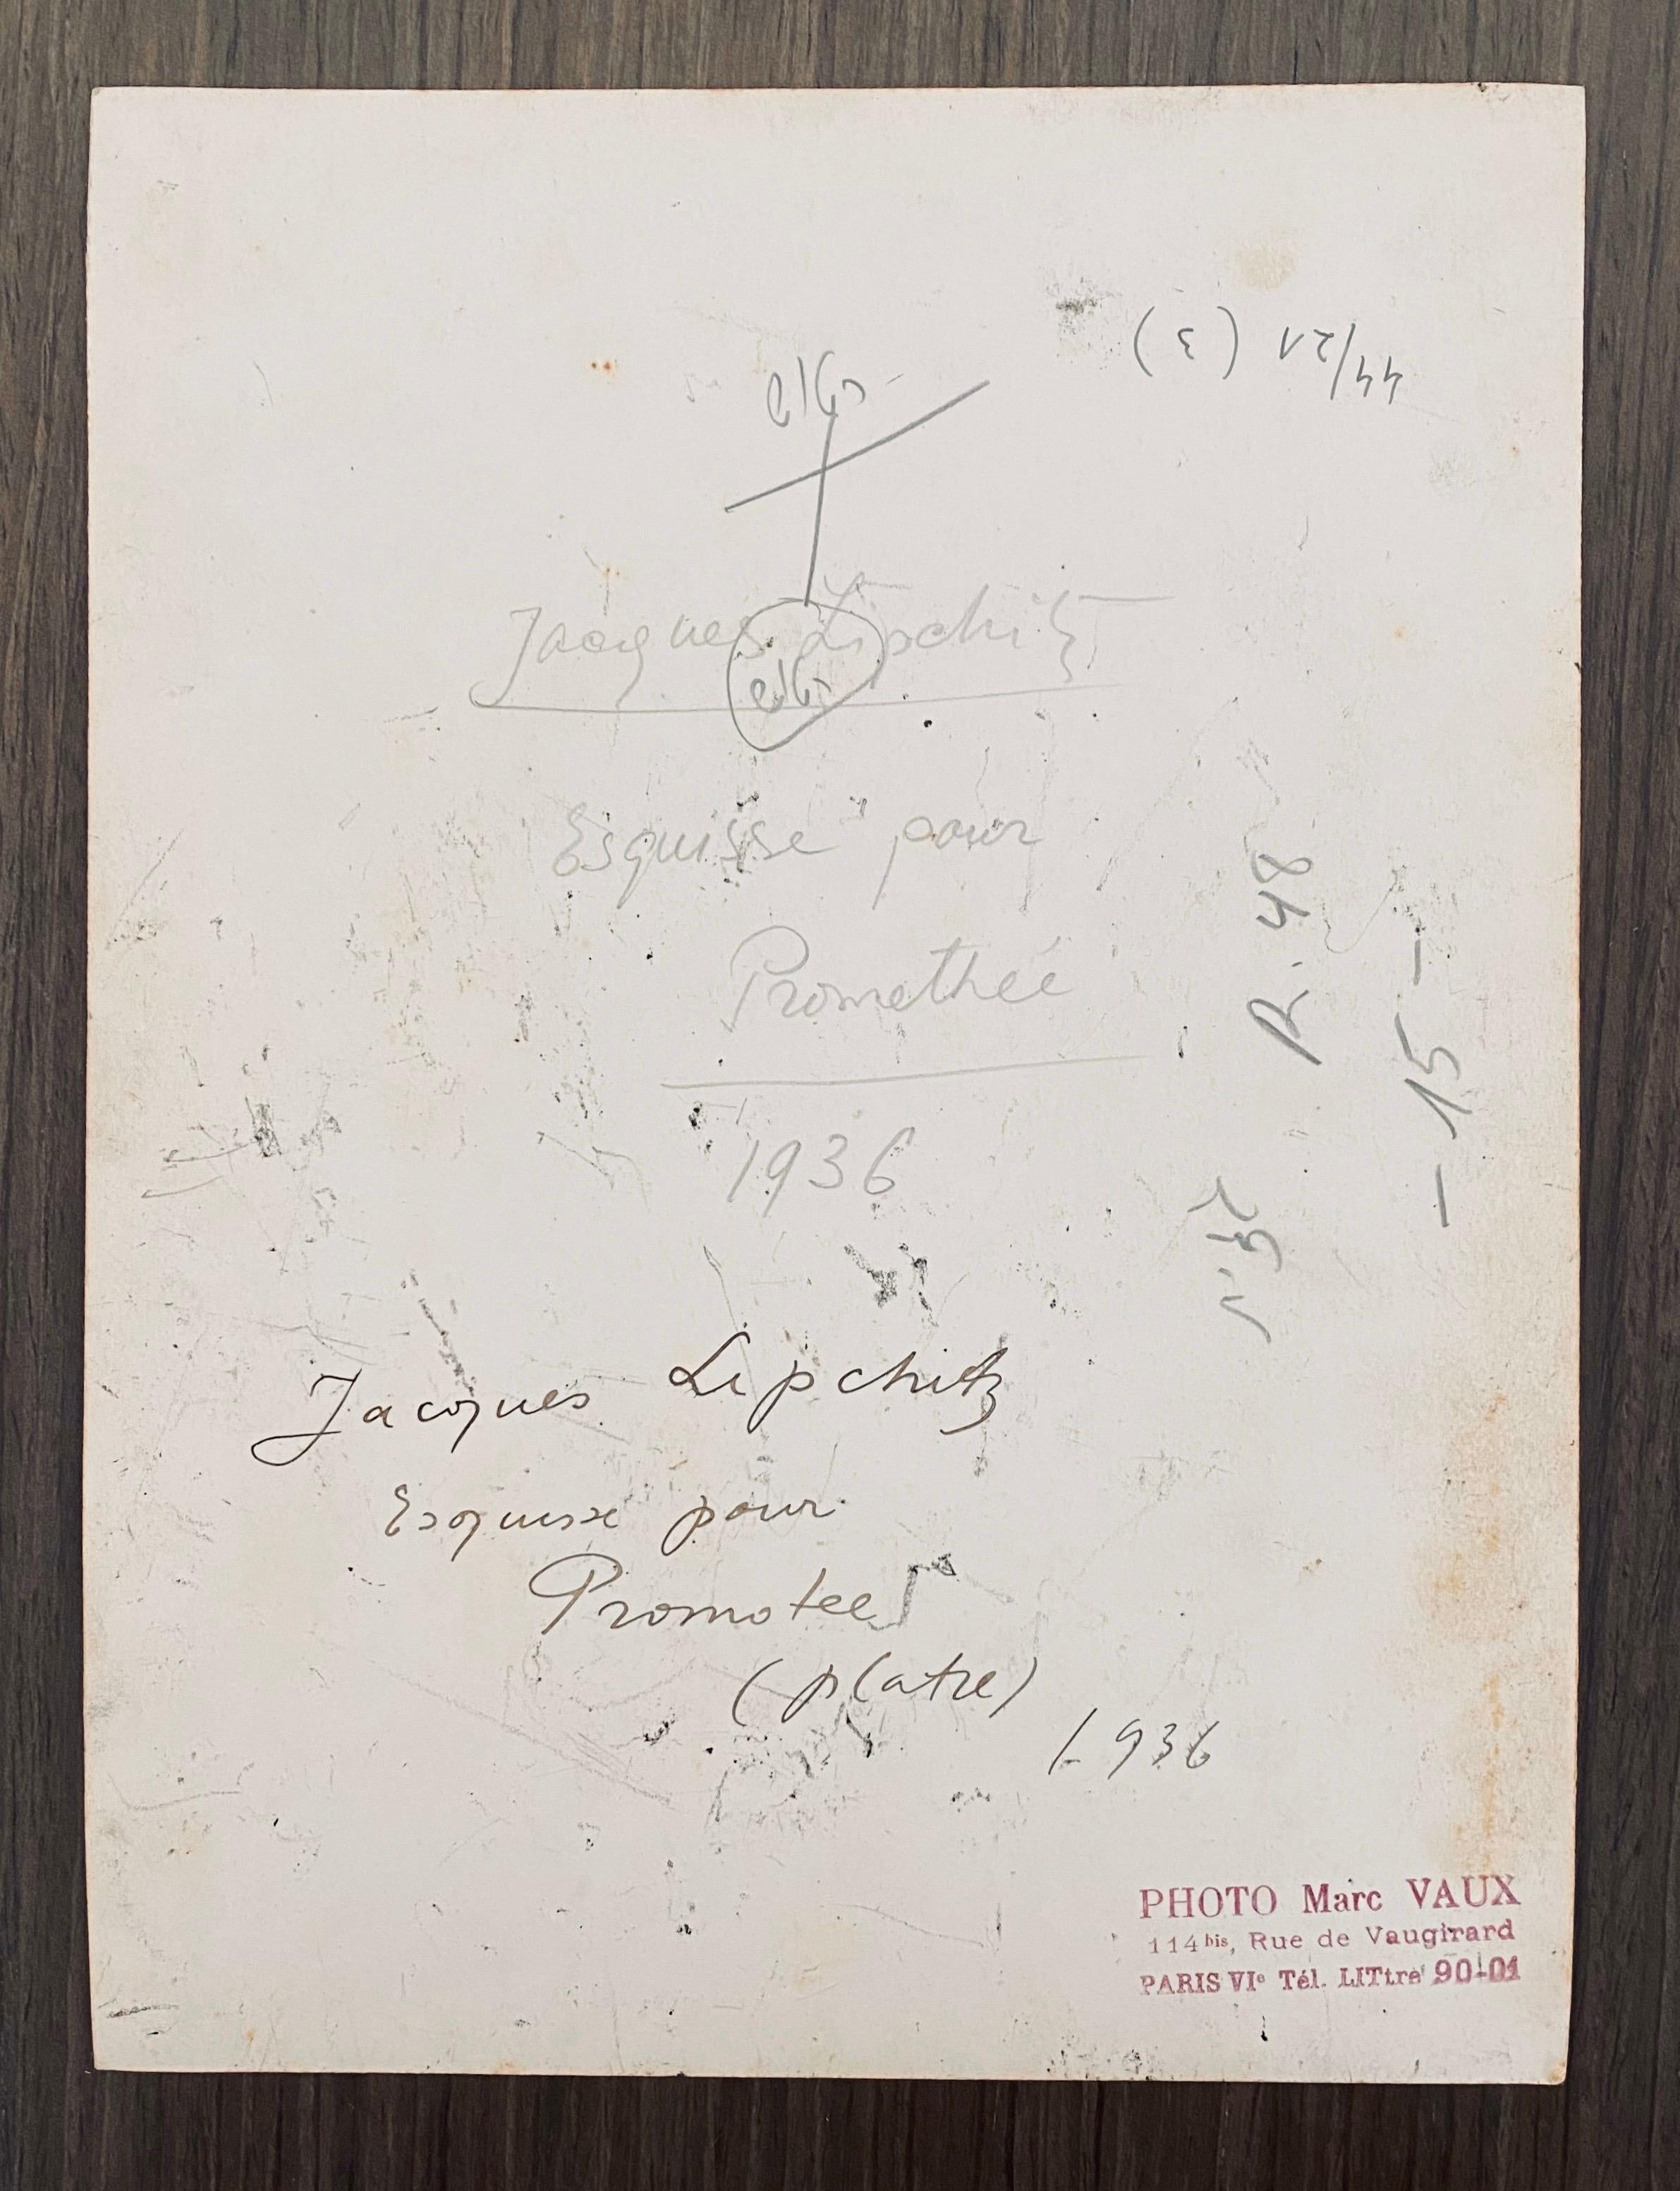 44/21 (3)
Jacques Lipchitz
Esquisse pour
Promethée
1936
R. 48
- 15 -
Jacques Lipchitz
Esquisse pour
Promotee
(platre)
1936
PHOTO Marc VAUX
114 bis, Rue de Vaugirard
PARIS VIe Tél. LITtre 90-01